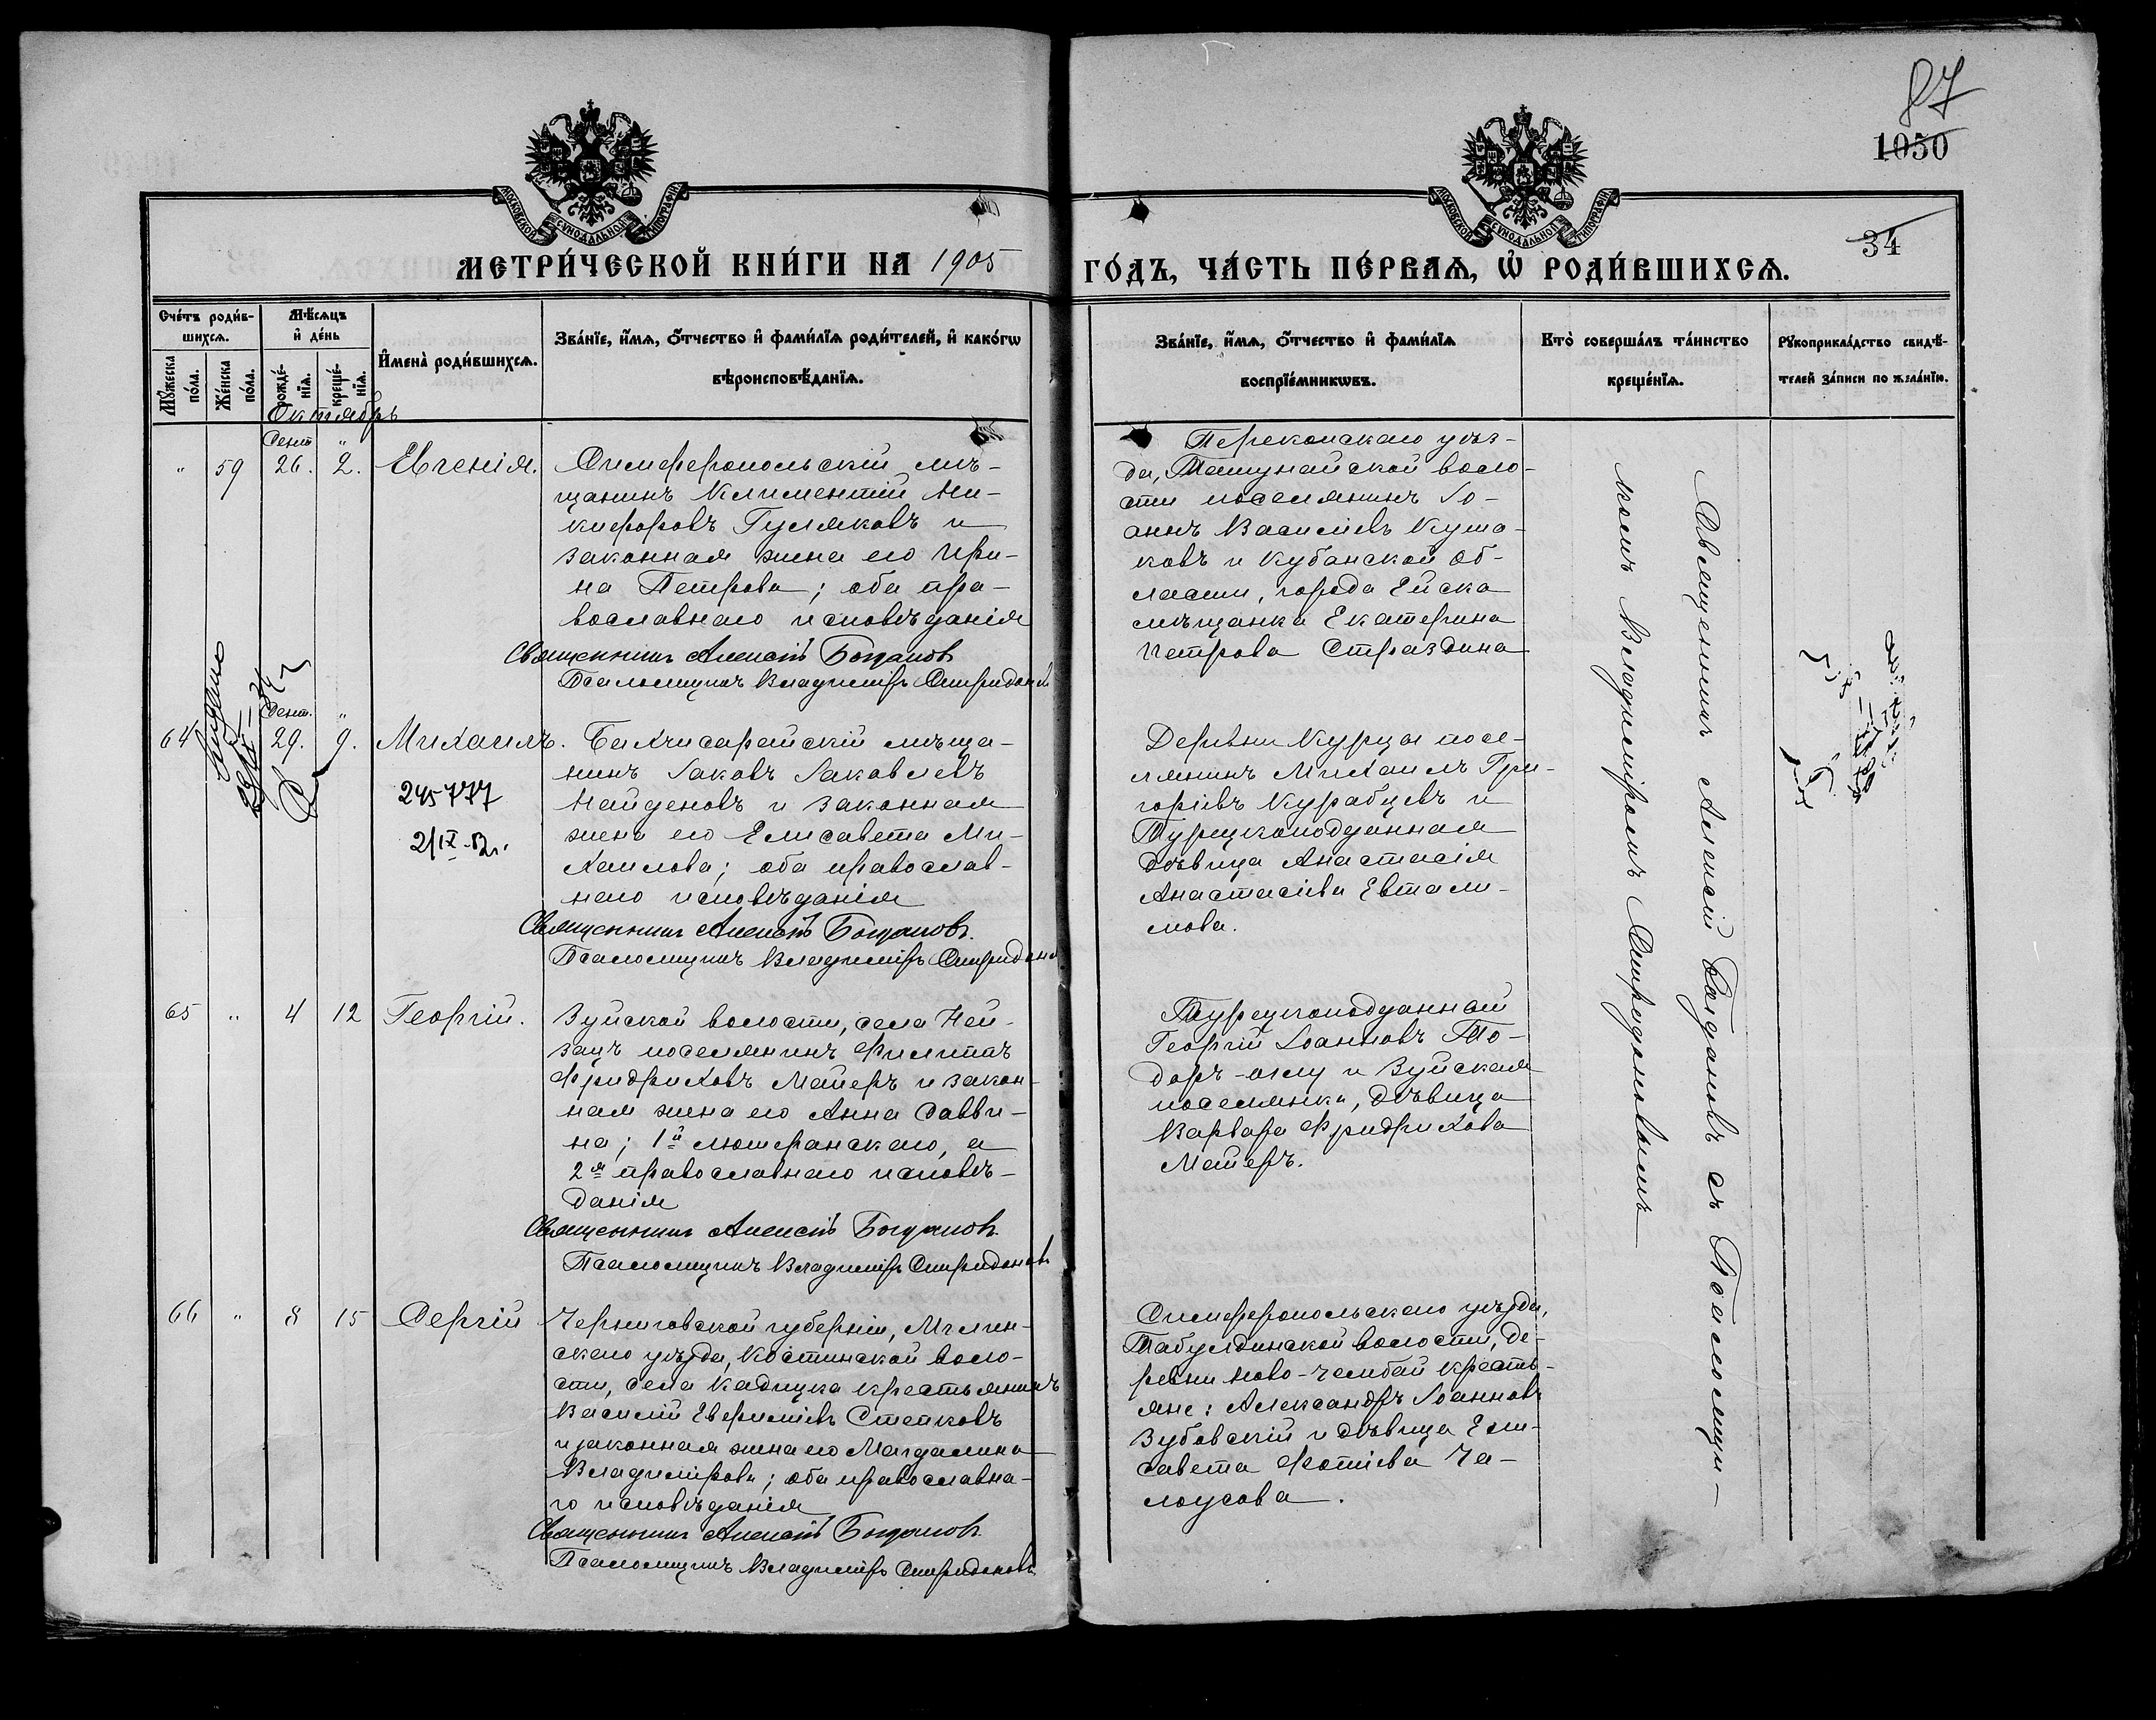 87
1050
34
МОСКОВСКОЙ СѴНОДАЛЬНОЙ ТИПОГРАФІИ
МОСКОВСКОЙ СѴНОДАЛЬНОЙ ТИПОГРАФІИ
МЕТРИ́ЧЕСКОЙ КНИ́ГИ НА 1905
ГО́ДЪ, ЧА́СТЬ ПЕ́РВАѦ, Ѡ҆ РОДИ́ВШИХСѦ.
Сче́тъ роди́в-
шихсѧ.
Мѣ́сѧцъ
и҆ де́нь
Мꙋ́жеска по́ла.
Же́нска по́ла.
рожде́-нїѧ.
креще́-нїѧ.
И҆мена̀ роди́вшихсѧ.
Зва́нїе, и҆́мѧ, ѻ҆́тчество и҆ фами́лїѧ роди́телей, и҆ како́гѡ
вѣроисповѣ́данїѧ.
Зва́нїе, и҆́мѧ, ѻ҆́тчество и҆ фами́лїѧ
воспрїе́мникѡвъ.
Кто̀ соверша́лъ та́инство
креще́нїѧ.
Рꙋкоприкла́дство свидѣ́-
телей за́писи по жела́нїю.
Октябрь
Сент. "
" 59 26. 2. Евгенія.
Симферопольскій мѣ-
щанинъ Климентій Ни-
кифоровъ Гусляковъ и
законная жена его Ири-
на Петрова; оба пра-
вославнаго исповѣданія
Священникъ Алексій Богдановъ
Псаломщикъ Владиміръ Спиридоновъ
Перекопскаго уѣз-
да, Ташунайской воло-
сти поселянинъ Іо-
аннъ Васильевъ Куша-
ковъ и Кубанской об-
ласти, города Ейска
мѣщанка Екатерина
Петрова Страздина
Сент. "
64 29. 9. Михаилъ.
245777
2/IX-52г.
Бахчисарайскій мѣща-
нинъ Іаковъ Іаковлевъ
Найденовъ и законная
жена его Елисавета Ми-
хаилова; оба православ-
наго исповѣданія
Священникъ Алексій Богдановъ.
Псаломщикъ Владиміръ Спиридоновъ
Деревни Курцы посе-
лянинъ Михаилъ Гри-
горіевъ Курабцевъ и
Турецкоподданная
дѣвица Анастасія
Анастасіева Евтали-
мова.
65 " 4 12 Георгій.
Зуйской волости, села Ней-
зацъ поселянинъ Филиппъ
Фридриховъ Майеръ и закон-
ная жена его Анна Савви-
на; 1й лютеранскаго, а
2я православнаго исповѣ-
данія
Священникъ Алексій Богдановъ.
Псаломщикъ Владиміръ Спиридоновъ
Турецкоподданный
Георгій Іоанновъ То-
доръ-оглу и Зуйская
поселянка, дѣвица
Варвара Фридрихова
Майеръ.
66 " 8 15 Сергій
Черниговской губерніи, Мглин-
скаго уѣзда, Костинской воло-
сти, села Кадецка крестьянинъ
Василій Евфиміевъ Степковъ
и законная жена его Магдалина
Владимірова; оба православна-
го исповѣданія
Священникъ Алексій Богдановъ.
Псаломщикъ Владиміръ Спиридоновъ.
Симферопольскаго уѣзда,
Табулдинской волости, де-
ревни Ново-Чембай кресть-
яне: Александръ Іоанновъ
Зубовскій и дѣвица Ели-
савета Фотіева Ча-
лоусова.
Священникъ Алексій Богдановъ съ Псаломщи-
комъ Владиміромъ Спиридоновымъ